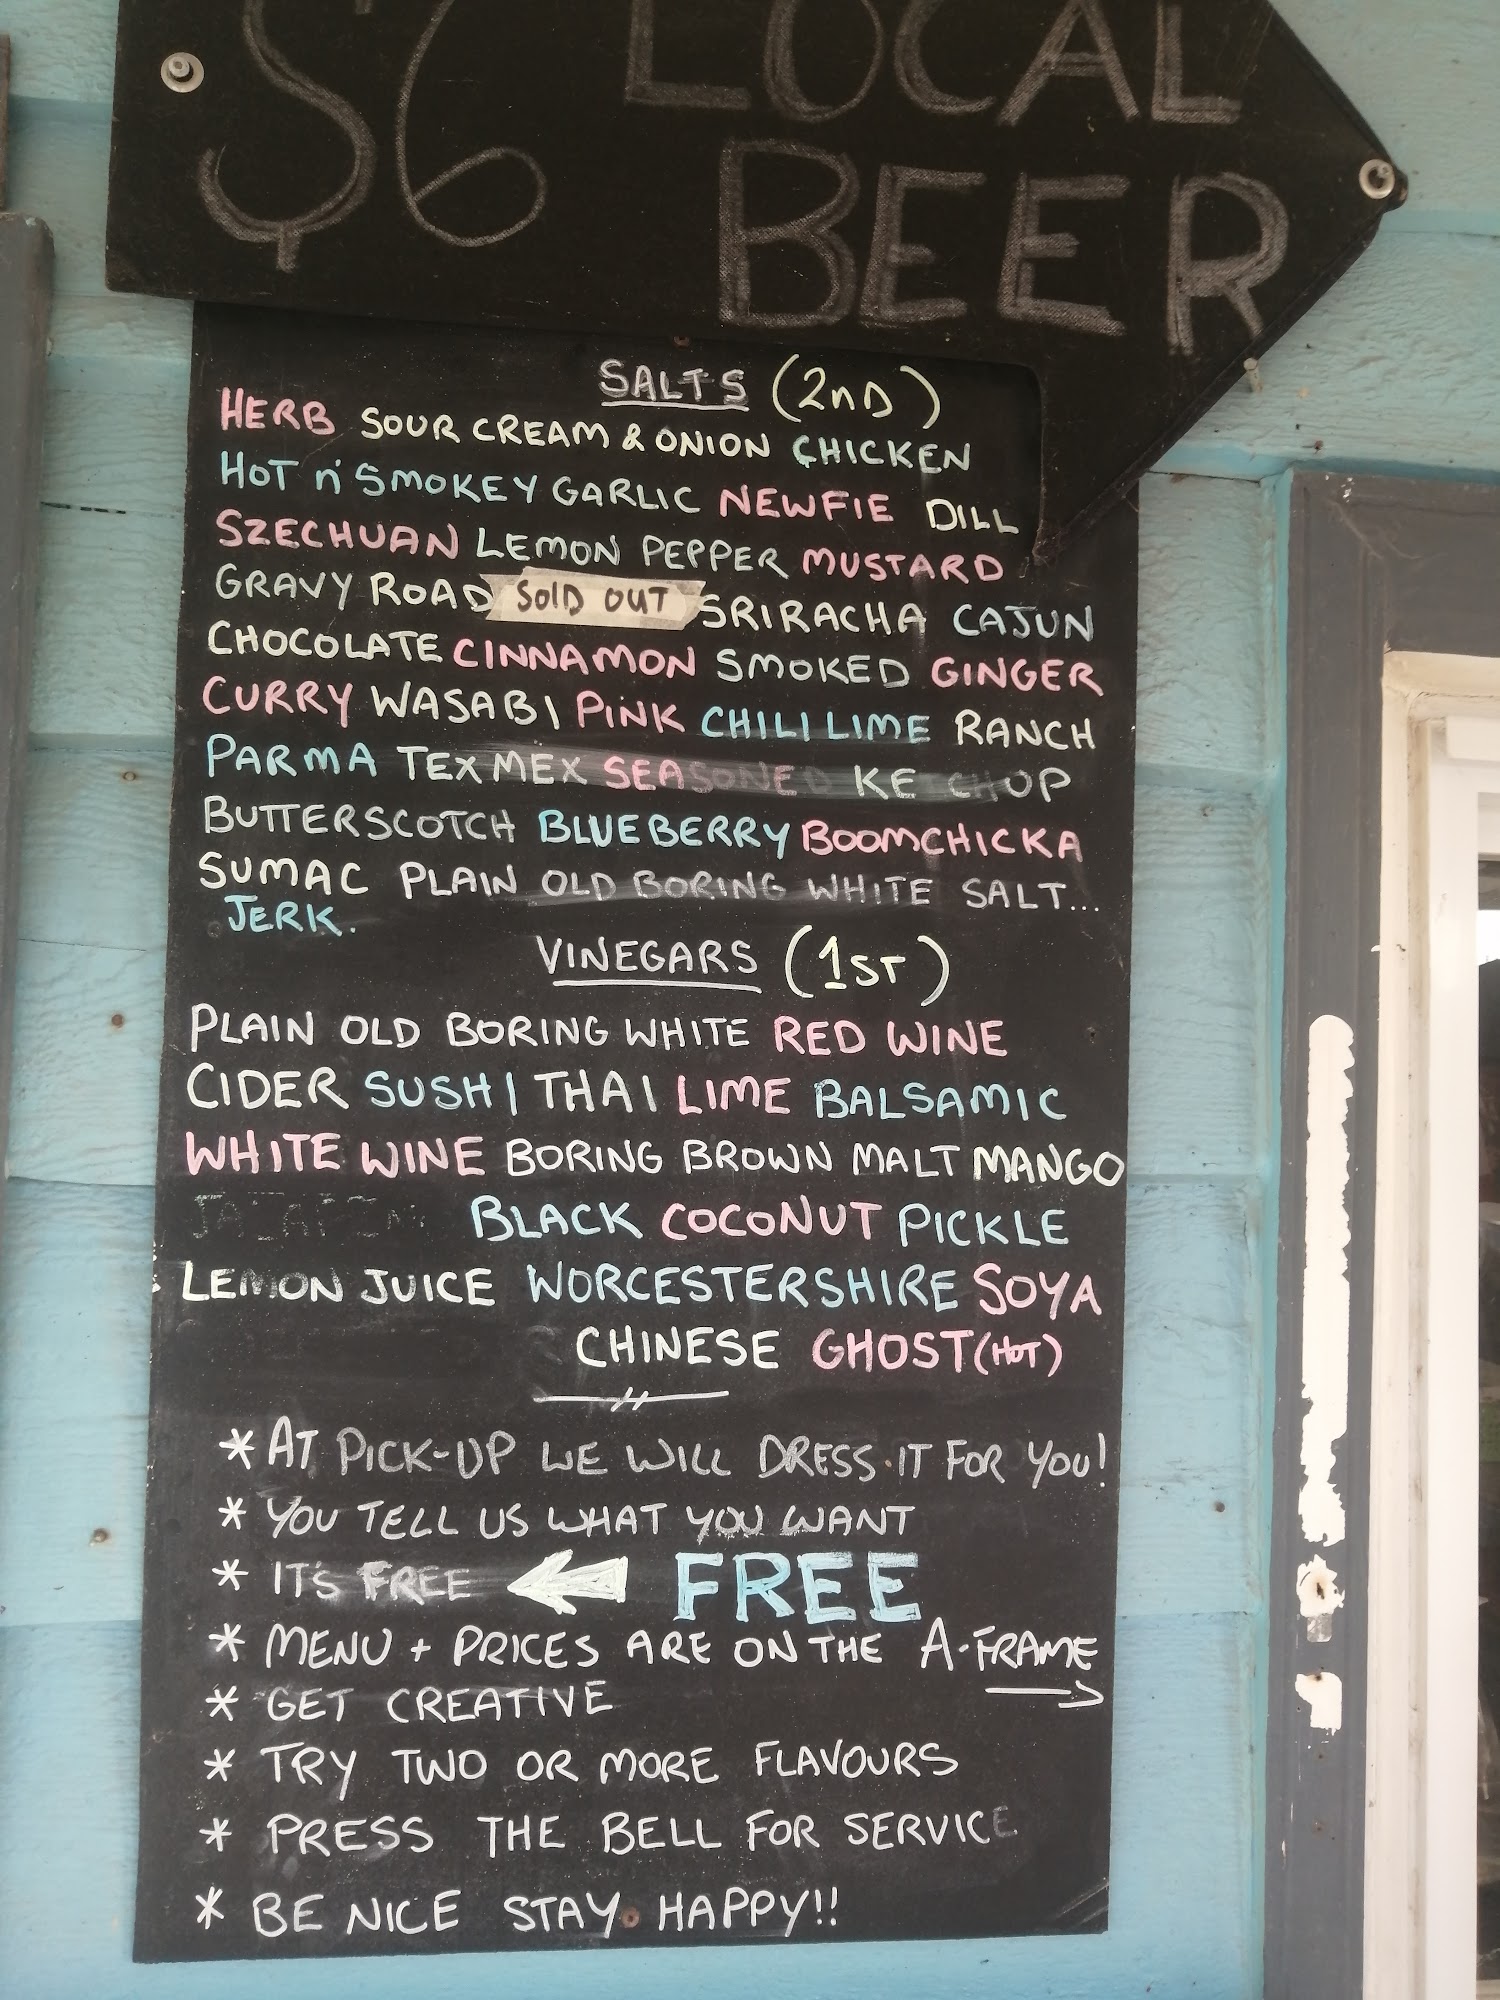 $6 LOCAL
BEER
SALTS (2nD)
HERB SOUR CREAM & ONION CHICKEN
HOT n' SMOKEY GARLIC NEWFIE DILL
SZECHUAN LEMON PEPPER MUSTARD
GRAVY ROAD SOlD OUT SRIRACHA CAJUN
CHOCOLATE CINNAMON SMOKED GINGER
CURRY WASABI PiNK CHILI LIME RANCH
PARMA TEX MEX SEASONED KE CHUP
BUTTERSCOTCH BLUEBERRY BOOMCHICKA
SUMAC PLAIN OLD BORING WHITE SALT...
JERK.
VINEGARS (1ST)
PLAIN OLD BORING WHITE RED WINE
CIDER SUSHI THAI LIME BALSAMIC
WHITE WINE BORING BROWN MALT MANGO
BLACK COCONUT PICKLE
LEMON JUICE WORCESTERSHIRE SOYA
CHINESE GHOST (HOT)
* AT PICK-UP WE WILL DRESS IT FOR YOU!
* YOU TELL US WHAT YOU WANT
* IT'S FREE FREE
* MENU + PRICES ARE ON THE A-FRAME
* GET CREATIVE
* TRY TWO OR MORE FLAVOURS
* PRESS THE BELL FOR SERVICE
* BE NICE STAY HAPPY!!